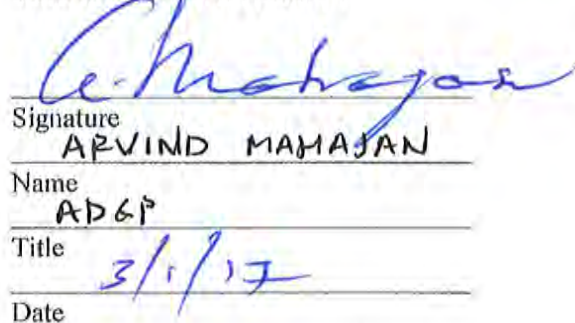 A. Mahajan
Signature
ARVIND MAHAJAN
Name
ADGP
Title
3/1/17
Date